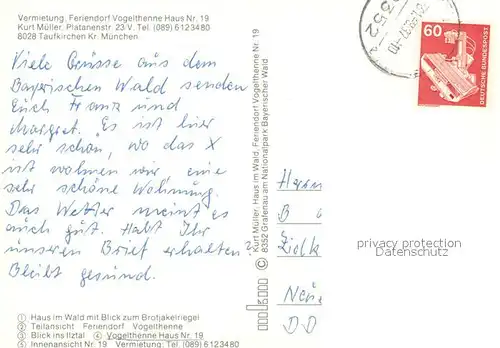 Vermietung: Feriendorf Vogelthenne Haus Nr. 19
Kurt Müller, Platanenstr. 23 V, Tel. (089) 6123480
8028 Taufkirchen Kr. München
Viele Grüsse aus dem
Bayerischen Wald senden
Euch Franz und
Margret. Es ist hier
sehr schön, wo das X
ist wohnen wir, eine
sehr schöne Wohnung.
Das Wetter meint es
auch gut. Habt Ihr
unseren Brief erhalten?
Bleibt gesund.
① Haus im Wald mit Blick zum Brotjakelriegel
② Teilansicht Feriendorf Vogelthenne
③ Blick ins Ilztal ④ Vogelthenne Haus Nr. 19
⑤ Innenansicht Nr. 19 Vermietung: Tel. (089) 6123480
Kurt Müller, Haus im Wald, Feriendorf Vogelthenne Nr. 19
© 8352 Grafenau am Nationalpark Bayerischer Wald
8352
60
DEUTSCHE BUNDESPOST
privacy protection
Datenschutz